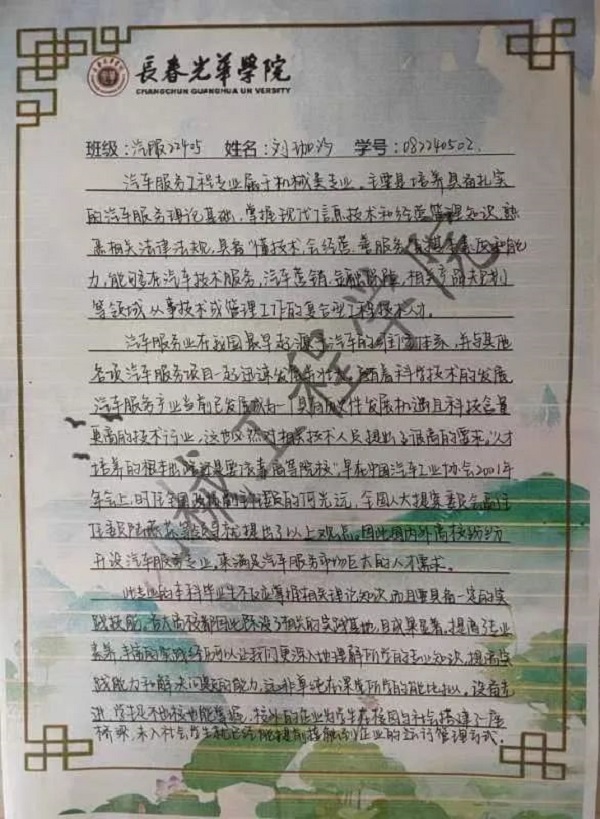 長春光華學院
CHANGCHUN GUANGHUA UN VERSITY
班级:汽服22405 姓名:刘 学号:082240502
汽车服务工程专业属于机械类专业。主要是培养具有扎实
的汽车服务理论基础,掌握现代信息技术和经营管理知识,熟
悉相关法律法规,具备"懂技术,会经营,善服务"和能
力,能够在汽车技术服务,汽车营销,金融保险,相关产品规划
等领域从事技术或管理工作的复合型工程技术人才。
汽车服务业在我国最早起源于汽车的维修体系,并与其他
各项汽车服务项目一起迅速发展壮大。随着科学技术的发展
汽车服务产业当前已发展成为一个具有发展机遇且科技含量
更高的技术行业,这也必然对相关技术人员提出了很高的要求。"人才
培养的根本出路就是要依靠高等院校",早在中国汽车工业协会2001年
年会上,时任全国政协副主席的何光远,全国人大提案委员会副主任
任委员就提出了以上观点。因此国内外高校纷纷
开设汽车服务专业,来满足汽车服务市场巨大的人才需求。
此专业的本科毕业生不仅应掌握相关理论知识,而且要具备一定的实
践技能,各大高校都因此铺设了相关的实践基地,且成果显著。提高了专业
素养,丰富的实践经历可以让我们更深入地理解所学的专业知识,提高实
践能力和解决问题的能力,远非单纯在课堂所学的能比拟。设备先
进,学生足不出校也能掌握,校外的企业为学生在校园与社会搭建了一座
桥梁,未入社会学生就已经能提前接触到企业的运行管理方式。
机械工程学院